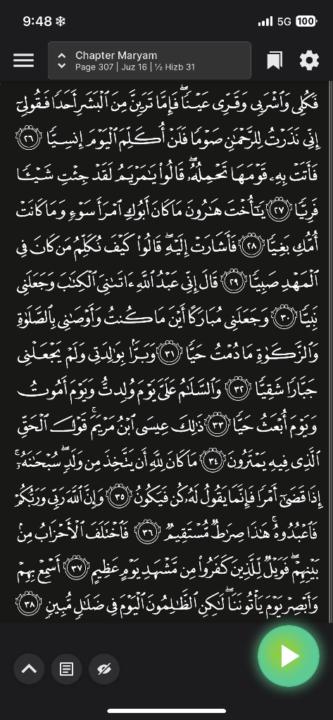 9:48
5G 100
Chapter Maryam
Page 307 | Juz 16 | ½ Hizb 31
فَكُلِى وَٱشْرَبِى وَقَرِّى عَيْنًا ۖ فَإِمَّا تَرَيِنَّ مِنَ ٱلْبَشَرِ أَحَدًا فَقُولِىٓ
إِنِّى نَذَرْتُ لِلرَّحْمَـٰنِ صَوْمًا فَلَنْ أُكَلِّمَ ٱلْيَوْمَ إِنسِيًّا ٢٦
فَأَتَتْ بِهِۦ قَوْمَهَا تَحْمِلُهُۥ ۖ قَالُوا۟ يَـٰمَرْيَمُ لَقَدْ جِئْتِ شَيْـًٔا
فَرِيًّا ٢٧ يَـٰٓأُخْتَ هَـٰرُونَ مَا كَانَ أَبُوكِ ٱمْرَأَ سَوْءٍ وَمَا كَانَتْ
أُمُّكِ بَغِيًّا ٢٨ فَأَشَارَتْ إِلَيْهِ ۖ قَالُوا۟ كَيْفَ نُكَلِّمُ مَن كَانَ فِى
ٱلْمَهْدِ صَبِيًّا ٢٩ قَالَ إِنِّى عَبْدُ ٱللَّهِ ءَاتَىٰنِىَ ٱلْكِتَـٰبَ وَجَعَلَنِى
نَبِيًّا ٣٠ وَجَعَلَنِى مُبَارَكًا أَيْنَ مَا كُنتُ وَأَوْصَـٰنِى بِٱلصَّلَوٰةِ
وَٱلزَّكَوٰةِ مَا دُمْتُ حَيًّا ٣١ وَبَرًّۢا بِوَٰلِدَتِى وَلَمْ يَجْعَلْنِى
جَبَّارًا شَقِيًّا ٣٢ وَٱلسَّلَـٰمُ عَلَىَّ يَوْمَ وُلِدتُّ وَيَوْمَ أَمُوتُ
وَيَوْمَ أُبْعَثُ حَيًّا ٣٣ ذَٰلِكَ عِيسَى ٱبْنُ مَرْيَمَ ۚ قَوْلَ ٱلْحَقِّ
ٱلَّذِى فِيهِ يَمْتَرُونَ ٣٤ مَا كَانَ لِلَّهِ أَن يَتَّخِذَ مِن وَلَدٍ ۖ سُبْحَـٰنَهُۥٓ ۚ
إِذَا قَضَىٰٓ أَمْرًا فَإِنَّمَا يَقُولُ لَهُۥ كُن فَيَكُونُ ٣٥ وَإِنَّ ٱللَّهَ رَبِّى وَرَبُّكُمْ
فَٱعْبُدُوهُ ۚ هَـٰذَا صِرَٰطٌ مُّسْتَقِيمٌ ٣٦ فَٱخْتَلَفَ ٱلْأَحْزَابُ مِنۢ
بَيْنِهِمْ ۖ فَوَيْلٌ لِّلَّذِينَ كَفَرُوا۟ مِن مَّشْهَدِ يَوْمٍ عَظِيمٍ ٣٧ أَسْمِعْ بِهِمْ
وَأَبْصِرْ يَوْمَ يَأْتُونَنَا ۖ لَـٰكِنِ ٱلظَّـٰلِمُونَ ٱلْيَوْمَ فِى ضَلَـٰلٍ مُّبِينٍ ٣٨